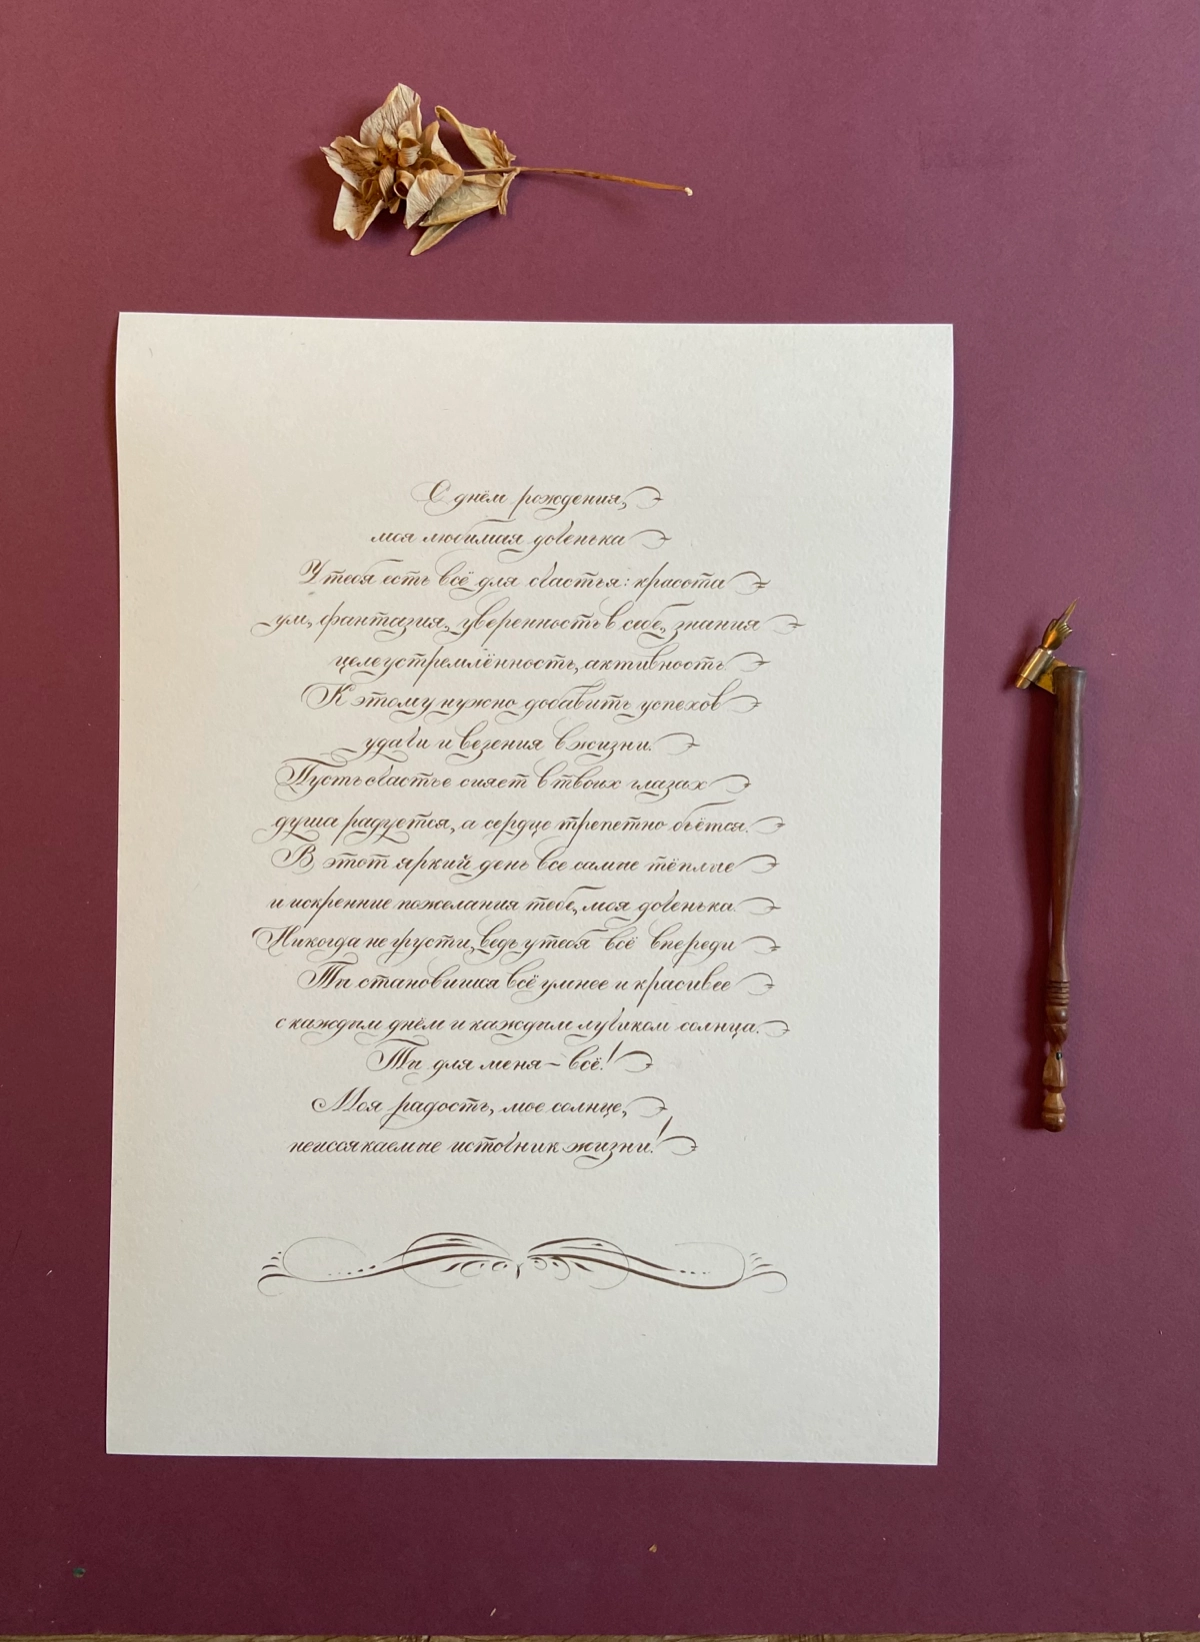 С днём рождения,
моя любимая доченька
У тебя есть всё для счастья: красота
ум, фантазия, уверенность в себе, знания
целеустремлённость, активность.
К этому нужно добавить успехов
удачи и везения в жизни.
Пусть счастье сияет в твоих глазах
душа радуется, а сердце трепетно бьётся.
В этот яркий день все самые тёплые
и искренние пожелания тебе, моя доченька.
Никогда не грусти, ведь у тебя всё впереди
Ты становишся всё умнее и красивее
с каждым днём и каждым лучиком солнца.
Ты для меня – всё!
Моя радость, мое солнце,
неиссякаемые источник жизни!